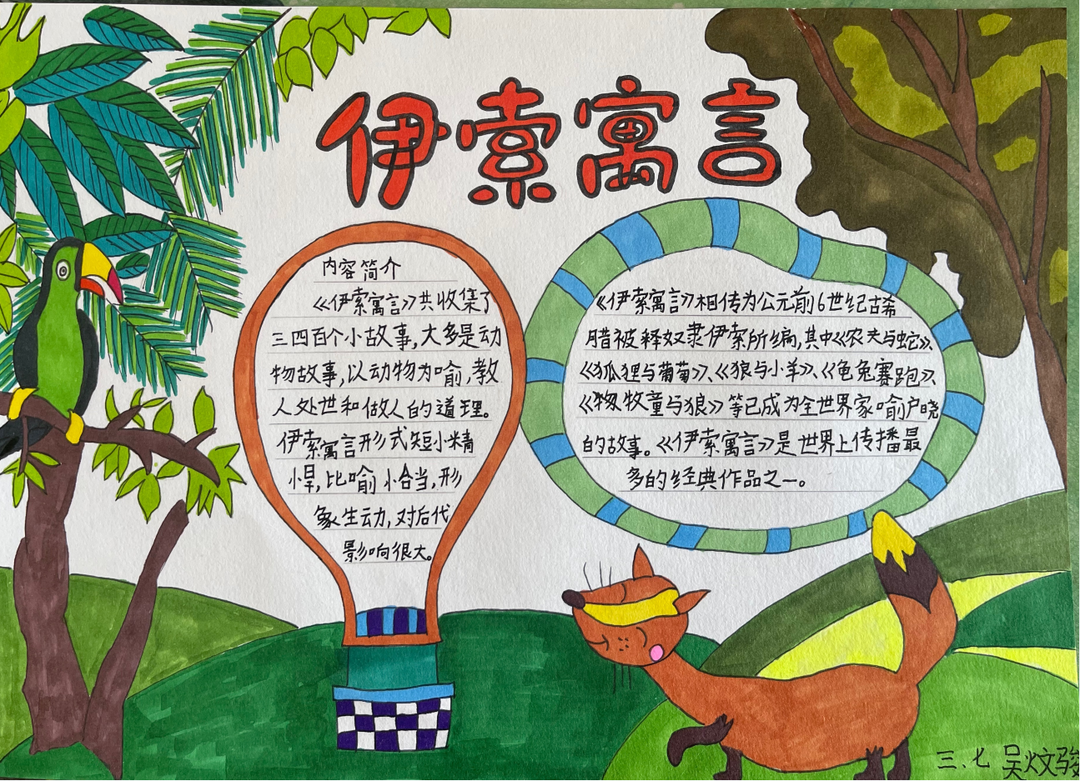 伊索寓言
内容简介
《伊索寓言》共收集了
三四百个小故事,大多是动
物故事,以动物为喻,教
人处世和做人的道理。
伊索寓言形式短小精
悍,比喻恰当,形
象生动,对后代
影响很大。
《伊索寓言》相传为公元前6世纪古希
腊被释奴隶伊索所编,其中《农夫与蛇》、
《狐狸与葡萄》、《狼与小羊》、《龟兔赛跑》、
《物牧童与狼》等已成为全世界家喻户晓
的故事。《伊索寓言》是世界上传播最
多的经典作品之一。
三、七 吴炆骏